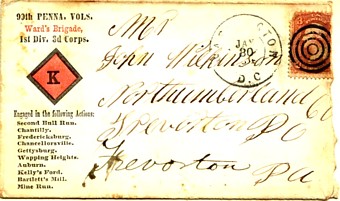 99th PENNA. VOLS.
Ward's Brigade,
1st Div. 3d Corps.
K
Engaged in the following Actions:
Second Bull Run.
Chantilly.
Fredericksburg.
Chancellorsville.
Gettysburg.
Wapping Heights.
Auburn.
Kelly's Ford.
Bartlett's Mill.
Mine Run.
Mr
John Wilkinson
Northumberland Co
Treverton Po
Treverton Pa
JAN
30
D.C